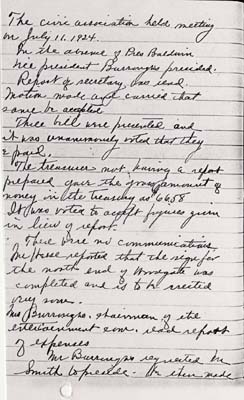 The civic association held meeting
on July 11, 1924.
In the absence of Pres Baldwin
Vice president Burroughs presided.
Report of secretary was read.
Motion made and carried that
same be accepted
Three bills were presented and
it was unanimously voted that they
be paid.
The treasurer not having a report
prepared gave the gross amount of
money in the treasury as 66.58
It was voted to accept figures given
in lieu of report.
There were no communications,
Mr Hesse reported that the sign for
the north end of was
completed and is to be erected
very soon.
Mr Burroughs, chairman of the
entertainment com. read report
of expenses
Mr Burroughs requested Mr
Smith to preside. He then made